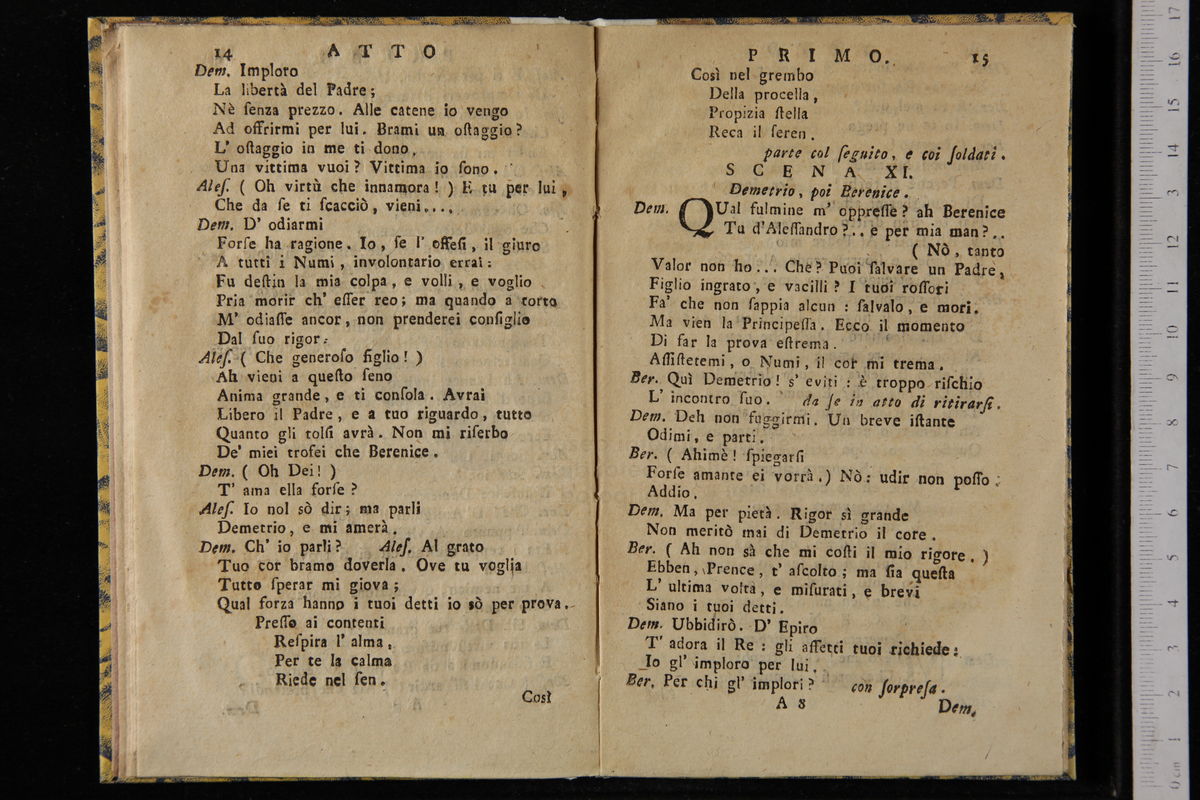 14 ATTO
Dem. Imploro
La libertà del Padre;
Nè ſenza prezzo. Alle catene io vengo
Ad offrirmi per lui. Brami un oſtaggio?
L' oſtaggio in me ti dono,
Una vittima vuoi? Vittima io ſono.
Aleſ. ( Oh virtù che innamora! ) E tu per lui,
Che da ſe ti ſcacciò, vieni....
Dem. D' odiarmi
Forſe ha ragione. Io, ſe l' offeſi, il giuro
A tutti i Numi, involontario errai:
Fu deſtin la mia colpa, e volli, e voglio
Pria morir ch' eſſer reo; ma quando a torto
M' odiaſſe ancor, non prenderei conſiglio
Dal ſuo rigor.
Aleſ. ( Che generoſo figlio! )
Ah vieni a queſto ſeno
Anima grande, e ti conſola. Avrai
Libero il Padre, e a tuo riguardo, tutto
Quanto gli tolſi avrà. Non mi riſerbo
De' miei trofei che Berenice.
Dem. ( Oh Dei! )
T' ama ella forſe?
Aleſ. Io nol sò dir; ma parli
Demetrio, e mi amerà.
Dem. Ch' io parli? Aleſ. Al grato
Tuo cor bramo doverla. Ove tu voglia
Tutto ſperar mi giova;
Qual forza hanno i tuoi detti io sò per prova.
Preſſo ai contenti
Reſpira l' alma,
Per te la calma
Riede nel ſen.
Così
PRIMO. 15
Così nel grembo
Della procella,
Propizia ſtella
Reca il ſeren.
parte col ſeguito, e coi ſoldati.
SCENA XI.
Demetrio, poi Berenice.
Dem. QUal fulmine m' oppreſſe? ah Berenice
Tu d'Aleſſandro?.. e per mia man?..
( Nò, tanto
Valor non ho... Che? Puoi ſalvare un Padre,
Figlio ingrato, e vacilli? I tuoi roſſori
Fa' che non ſappia alcun: ſalvalo, e mori.
Ma vien la Principeſſa. Ecco il momento
Di far la prova eſtrema.
Aſſiſtetemi, o Numi, il cor mi trema.
Ber. Quì Demetrio! s' eviti: è troppo riſchio
L' incontro ſuo. da ſe in atto di ritirarſi.
Dem. Deh non fuggirmi. Un breve iſtante
Odimi, e parti.
Ber. ( Ahimè! ſpiegarſi
Forſe amante ei vorrà.) Nò: udir non poſſo:
Addio.
Dem. Ma per pietà. Rigor sì grande
Non meritò mai di Demetrio il core.
Ber. ( Ah non sà che mi coſti il mio rigore. )
Ebben, Prence, t' aſcolto; ma ſia queſta
L' ultima volta, e miſurati, e brevi
Siano i tuoi detti.
Dem. Ubbidirò. D' Epiro
T' adora il Re: gli affetti tuoi richiede:
Io gl' imploro per lui.
Ber. Per chi gl' implori? con ſorpreſa.
A 8 Dem.